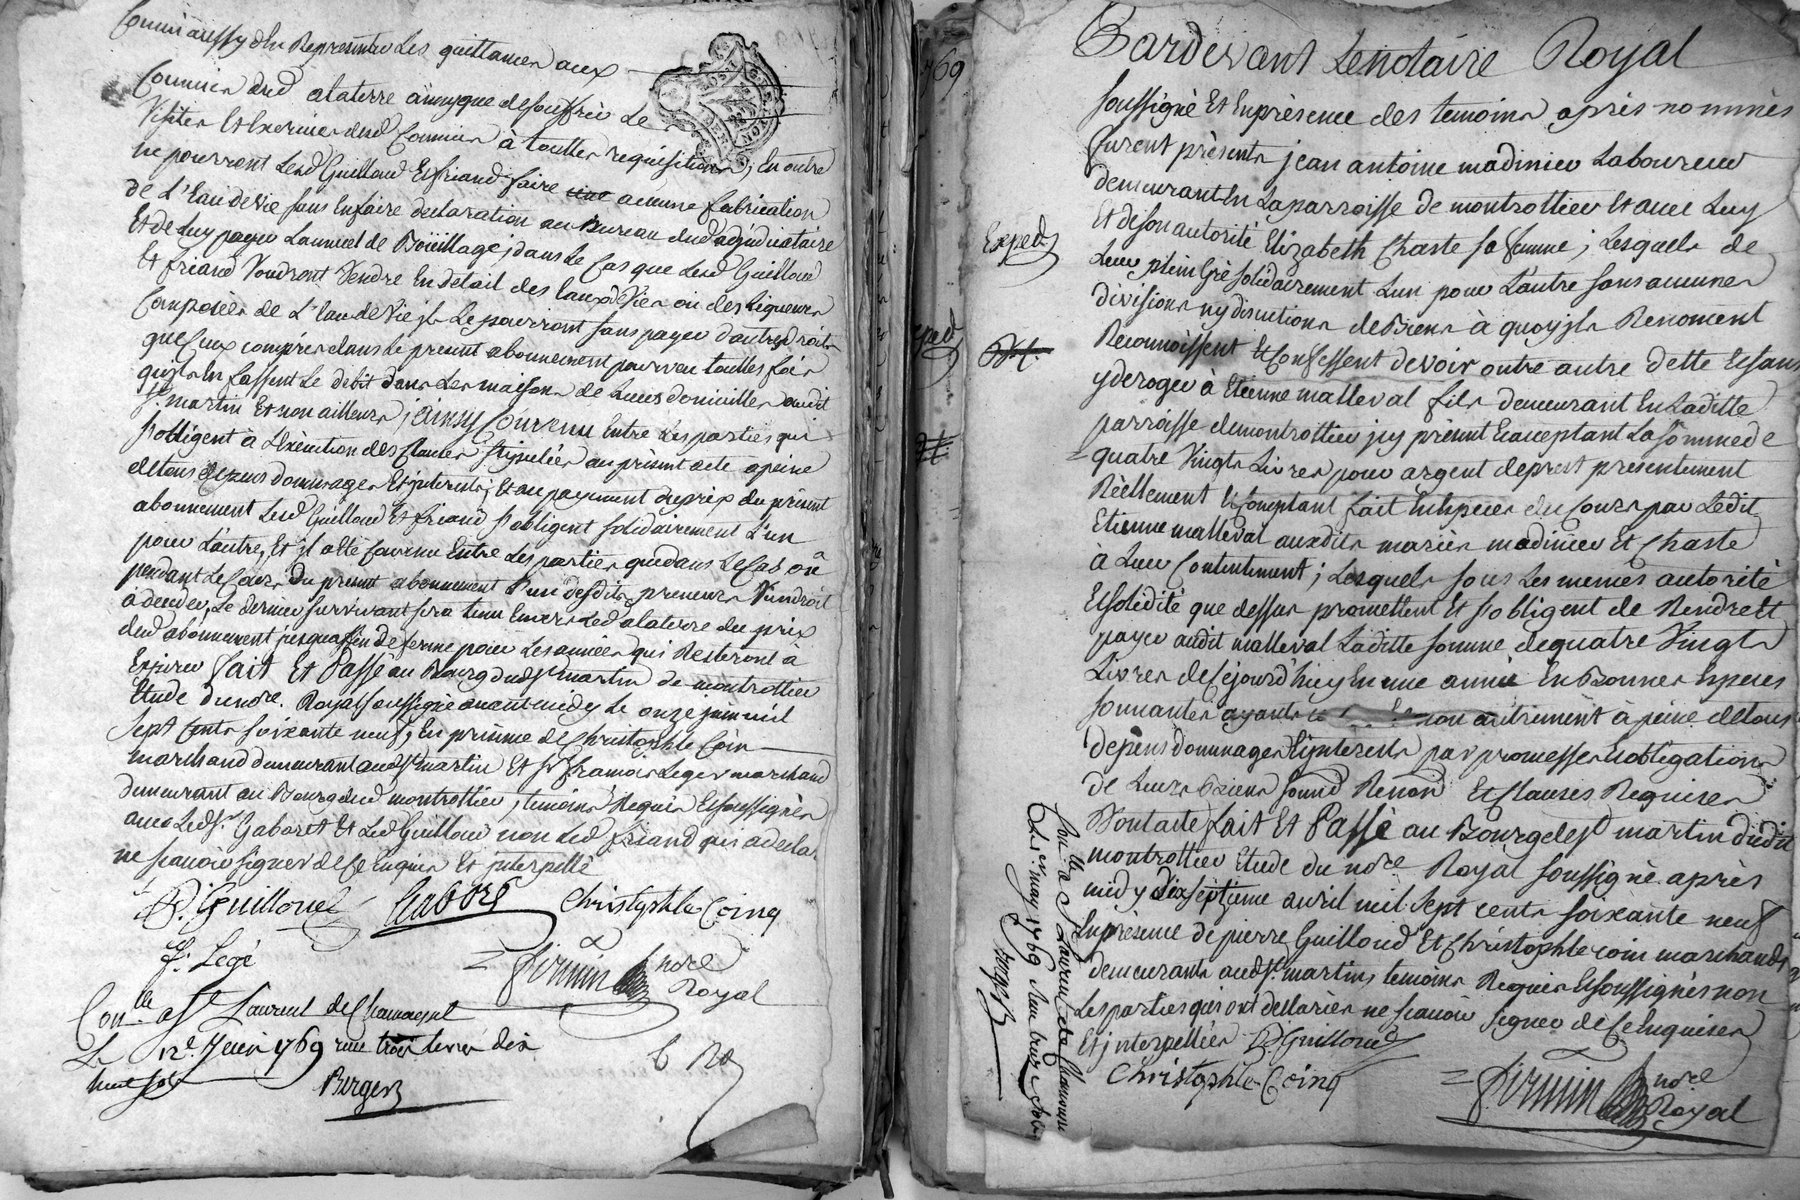 Commis aussy d'en Representer Les quittances aux
Commis dud alaterre ainsy que de souffrir Le
Visites Et Exercices desd Commis à touttes requisitions, En outre
ne pourront Lesd Guilloud Et friand faire aucune fabrication
de L'Eau de vie sans En faire declaration au Bureau dud adjudicataire
Et de Luy payer Lannuel de Boüillage; dans Le Cas que Lesd Guilloud
Et friand Voudront Vendre En détail des Eaux de Vies ou des Liqueurs
Composées de L'Eau de Vie jls Le pourront sans payer d'autres droits
que Ceux compris dans Le présent abonnement pourveu touttes fois
quils En fassent Le debit dans Les maisons de Leurs domicilles audit
st. martin Et non ailleurs; ainsy Convenu Entre Les parties qui
s'obligent à L'exécution des Clauses stipulées au présent acte a peine
de tous dépens dommages Et jnterests; Et au payement du prix du présent
abonnement Lesd Guilloud Et friand s'obligent solidairement L'un
pour L'autre, Et il a été Convenu Entre Les parties que dans Le Cas où
pendant Le Cours du présent abonnement L'un desdits preneurs Viendroit
à deceder, Le dernier survivant sera tenu Envers Led alaterre du prix
dud abonnement jusqua fin de ferme pour Les années qui Resteront à
Expirer fait Et Passé au Bourg dud st martin de montrottier
Etude du nore. Royal soussigné avant midy Le onze juin mil
sept Cents soixante neuf, En présence de Christophle Coin
marchand demeurant aud st martin Et sr françois Leger marchand
demeurant au Bourg dud montrottier, temoins Requis Et soussignés
avec Led sr. Gaboret Et Led Guilloud non Led friand qui a declaré
ne scavoir signer de Ce Enquis Et jnterpellé
P. Guilloud Gaboré Christophle Coing
F. Legé
Firmin nore Royal
Conlle a st Laurent de Chamousset
Le 12e Juin 1769 reçu treize sols
Berger
1769
Pardevant Lenotaire Royal
soussigné Et En présence des temoins après nommés
furent présents jean antoine madinier Laboureur
demeurant En La parroisse de montrottier Et avec Luy
Et de son autorité Elizabeth Chaste sa femme; Lesquels de
Leur plein Gré solidairement L'un pour L'autre sans aucunes
divisions ny discutions de Biens à quoy jls Renoncent
Reconnoissent Et Confessent devoir outre autre dette Et sans
y deroger à Etienne malleval fils demeurant En Laditte
parroisse de montrottier jcy présent Et acceptant La somme de
quatre Vingts Livres pour argent de prest présentement
Réellement Et Comptant fait En Espèces du Cours par Ledit
Etienne malleval auxdits mariés madinier Et Chaste
à Leur Contentement; Lesquels sous Les memes autorité
Et solidité que dessus promettent Et s'obligent de Rendre Et
payer audit malleval Laditte somme de quatre Vingts
Livres de Cejourd'huy En une année En Bonnes Espèces
sonnantes ayants non autrement à peine de tous
dépens dommages Et jnterests par promesses Et obligations
de Leurs Biens soumd Renond Et Clauses Requises
Dont acte fait Et Passé au Bourg de st martin dudit
montrottier Etude du nore Royal soussigné après
midy dix septieme avril mil sept cents soixante neuf
En présence de pierre Guilloud Et Christophle coin marchands
demeurants aud st martin; temoins Requis Et soussignés non
Les parties qui ont declarées ne scavoir signer de Ce Enquises
Et jnterpellées P. Guilloud
Christophle Coing
Firmin nore Royal
Exped
Conlle a st Laurent de Chamousset
Le 1er may 1769
Berger